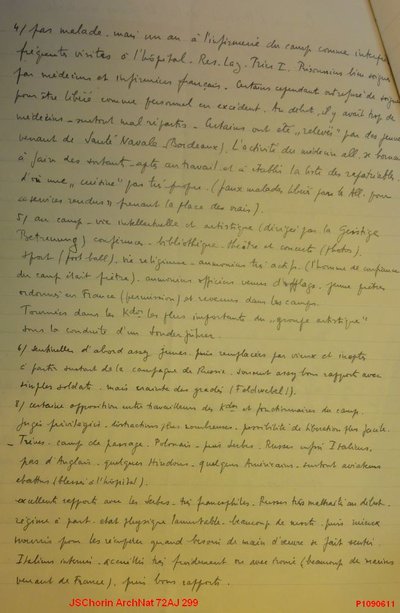 4/ pas malade. mais un an à l'infirmerie du camp comme interprète
fréquentes visites à l'hôpital. Res. Laz. Trier I. Prisonniers bien soignés
par médecins et infirmiers français. Certains cependant ont refusé de soigner
pour être libéré comme personnel en excédent. Au début, il y avait trop de
médecins - surtout mal répartis - Certains ont été "relevés" par des jeunes
venant de Santé Navale - Bordeaux). L'activité des médecins all. se bornait
à faire des sortants - aptes au travail. et à établir la liste des rapatriables.
d'où une "cuisine" pas très propre. (faux malades libérés par les All. pour
"services rendus" prenant la place des vrais).
5/ au camp - vie intellectuelle et artistique (dirigée par la Geistige
Betreuung) conférences - bibliothèque - théâtre et concerts (photos).
Sport (foot ball). vie religieuse - aumôniers très actifs. (l'homme de confiance
du camp était prêtre). aumôniers officiers venus d'offlags. jeunes prêtres
ordonnés en France (permission) et revenus dans les camps.
Tournées dans les Kdos les plus importants du "groupe artistique"
sous la conduite d'un Sonderführer.
6/ sentinelles d'abord assez jeunes. puis remplacées par vieux et inaptes
à partir surtout de la campagne de Russie. souvent assez bons rapports avec
simples soldats. mais crainte des gradés (Feldwebel!).
8/ certaine opposition entre travailleurs des Kdos et fonctionnaires du camp.
jugés privilégiés. distractions plus nombreuses. possibilité de libération plus facile.
- Trèves. camp de passage. Polonais - puis Serbes. Russes enfin Italiens,
pas d'Anglais - quelques Hindous - quelques Américains - surtout aviateurs
abattus (blessés à l'hôpital).
excellents rapports avec les Serbes - très francophiles. Russes très maltraités au début.
régime à part. état physique lamentable. beaucoup de morts. puis mieux
nourris pour les récupérer quand besoin de main d'œuvre se fait sentir.
Italiens internés. accueillis très froidement ou avec ironie (beaucoup de marins
venant de France), puis bons rapports.
JSChorin ArchNat 72AJ 299
P1090611